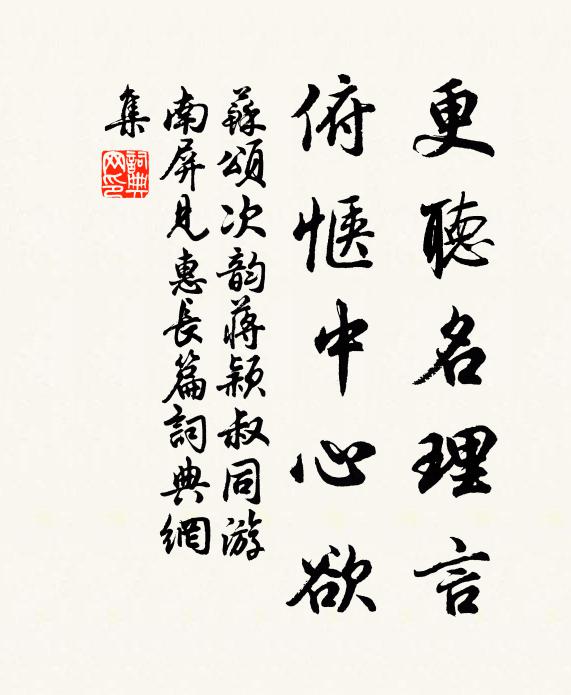 更聽名理言
俯愜中心欲
蘇頌次韵蔣颖叔同游
南屏見惠長篇詞典網
集
詞典
网印